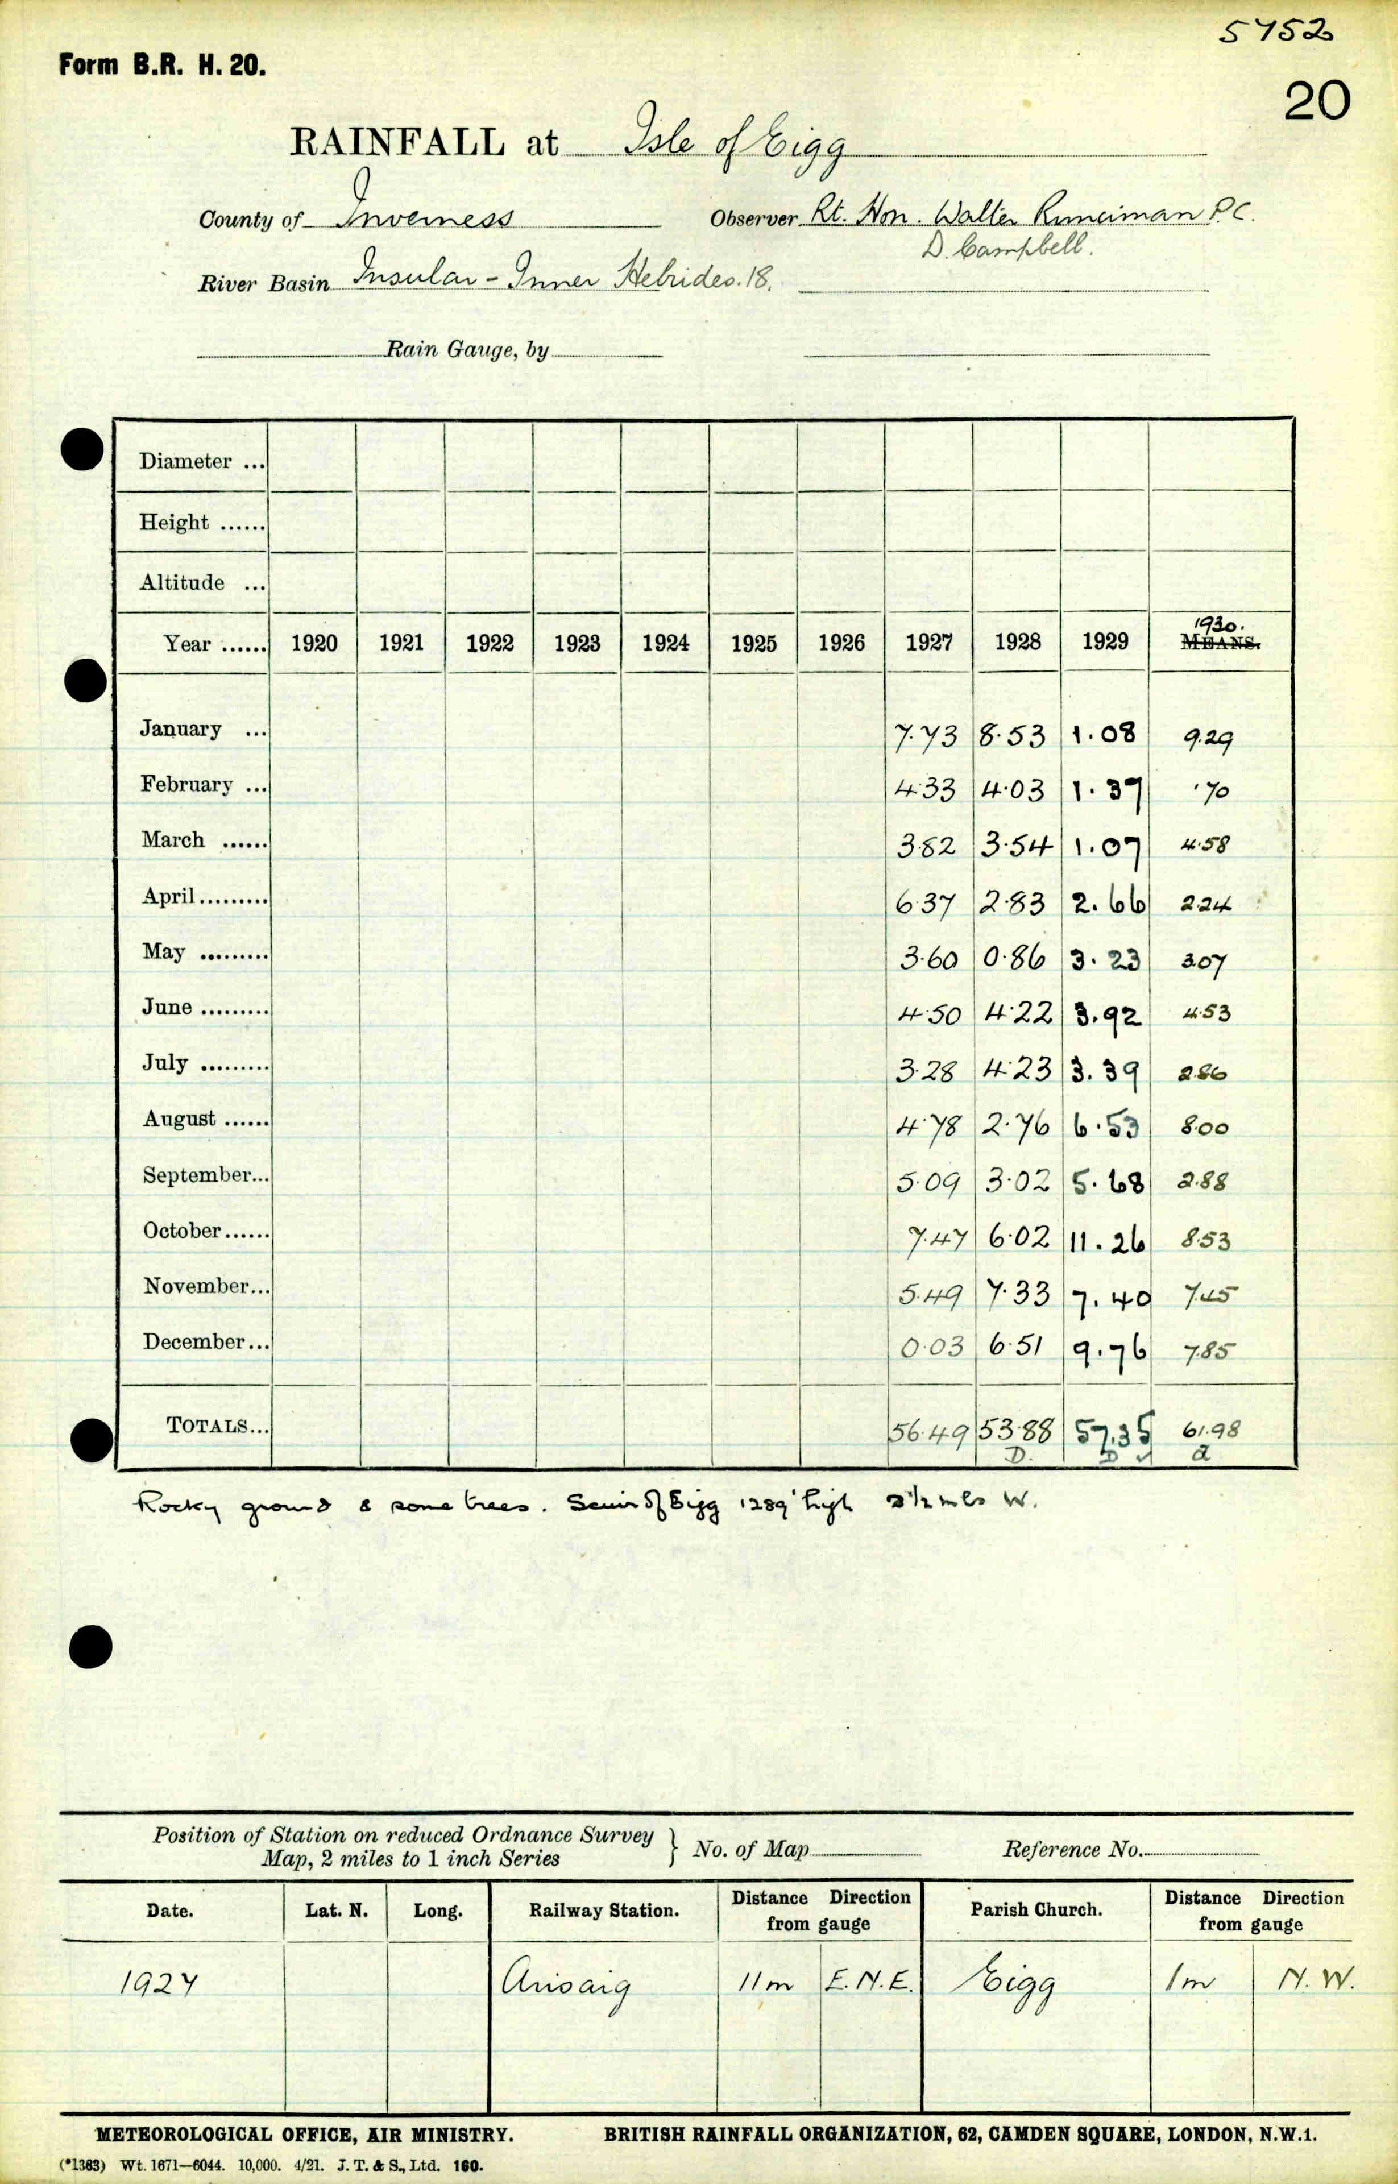 5752
Form B.R. H. 20.
20
RAINFALL at Isle of Eigg
County of Inverness Observer Rt. Hon. Walter Runciman P.C.
D. Campbell.
River Basin Insular - Inner Hebrides. 18.
Rain Gauge, by
Diameter ...
Height ......
Altitude ...
1930.
Year ...... 1920 1921 1922 1923 1924 1925 1926 1927 1928 1929 MEANS.
January ... 7.73 8.53 1.08 9.29
February ... 4.33 4.03 1.37 .70
March ...... 3.82 3.54 1.07 4.58
April ......... 6.37 2.83 2.66 2.24
May ......... 3.60 0.86 3.23 3.07
June ......... 4.50 4.22 3.92 4.53
July ......... 3.28 4.23 3.39 2.86
August ...... 4.78 2.76 6.53 8.00
September... 5.09 3.02 5.68 2.88
October ...... 7.47 6.02 11.26 8.53
November... 5.49 7.33 7.40 7.45
December ... 0.03 6.51 9.76 7.85
TOTALS... 56.49 53.88 57.35 61.98
D. D ✓ a
Rocky ground & some trees. Scuir of Eigg 1289' high 2½ mls W.
Position of Station on reduced Ordnance Survey
Map, 2 miles to 1 inch Series } No. of Map Reference No.
Date. Lat. N. Long. Railway Station. Distance Direction from gauge Parish Church. Distance Direction from gauge
1927 Arisaig 11m E.N.E. Eigg 1m N.W.
METEOROLOGICAL OFFICE, AIR MINISTRY. BRITISH RAINFALL ORGANIZATION, 62, CAMDEN SQUARE, LONDON, N.W.1.
(*1363) Wt. 1671—6044. 10,000. 4/21. J. T. & S., Ltd. 160.